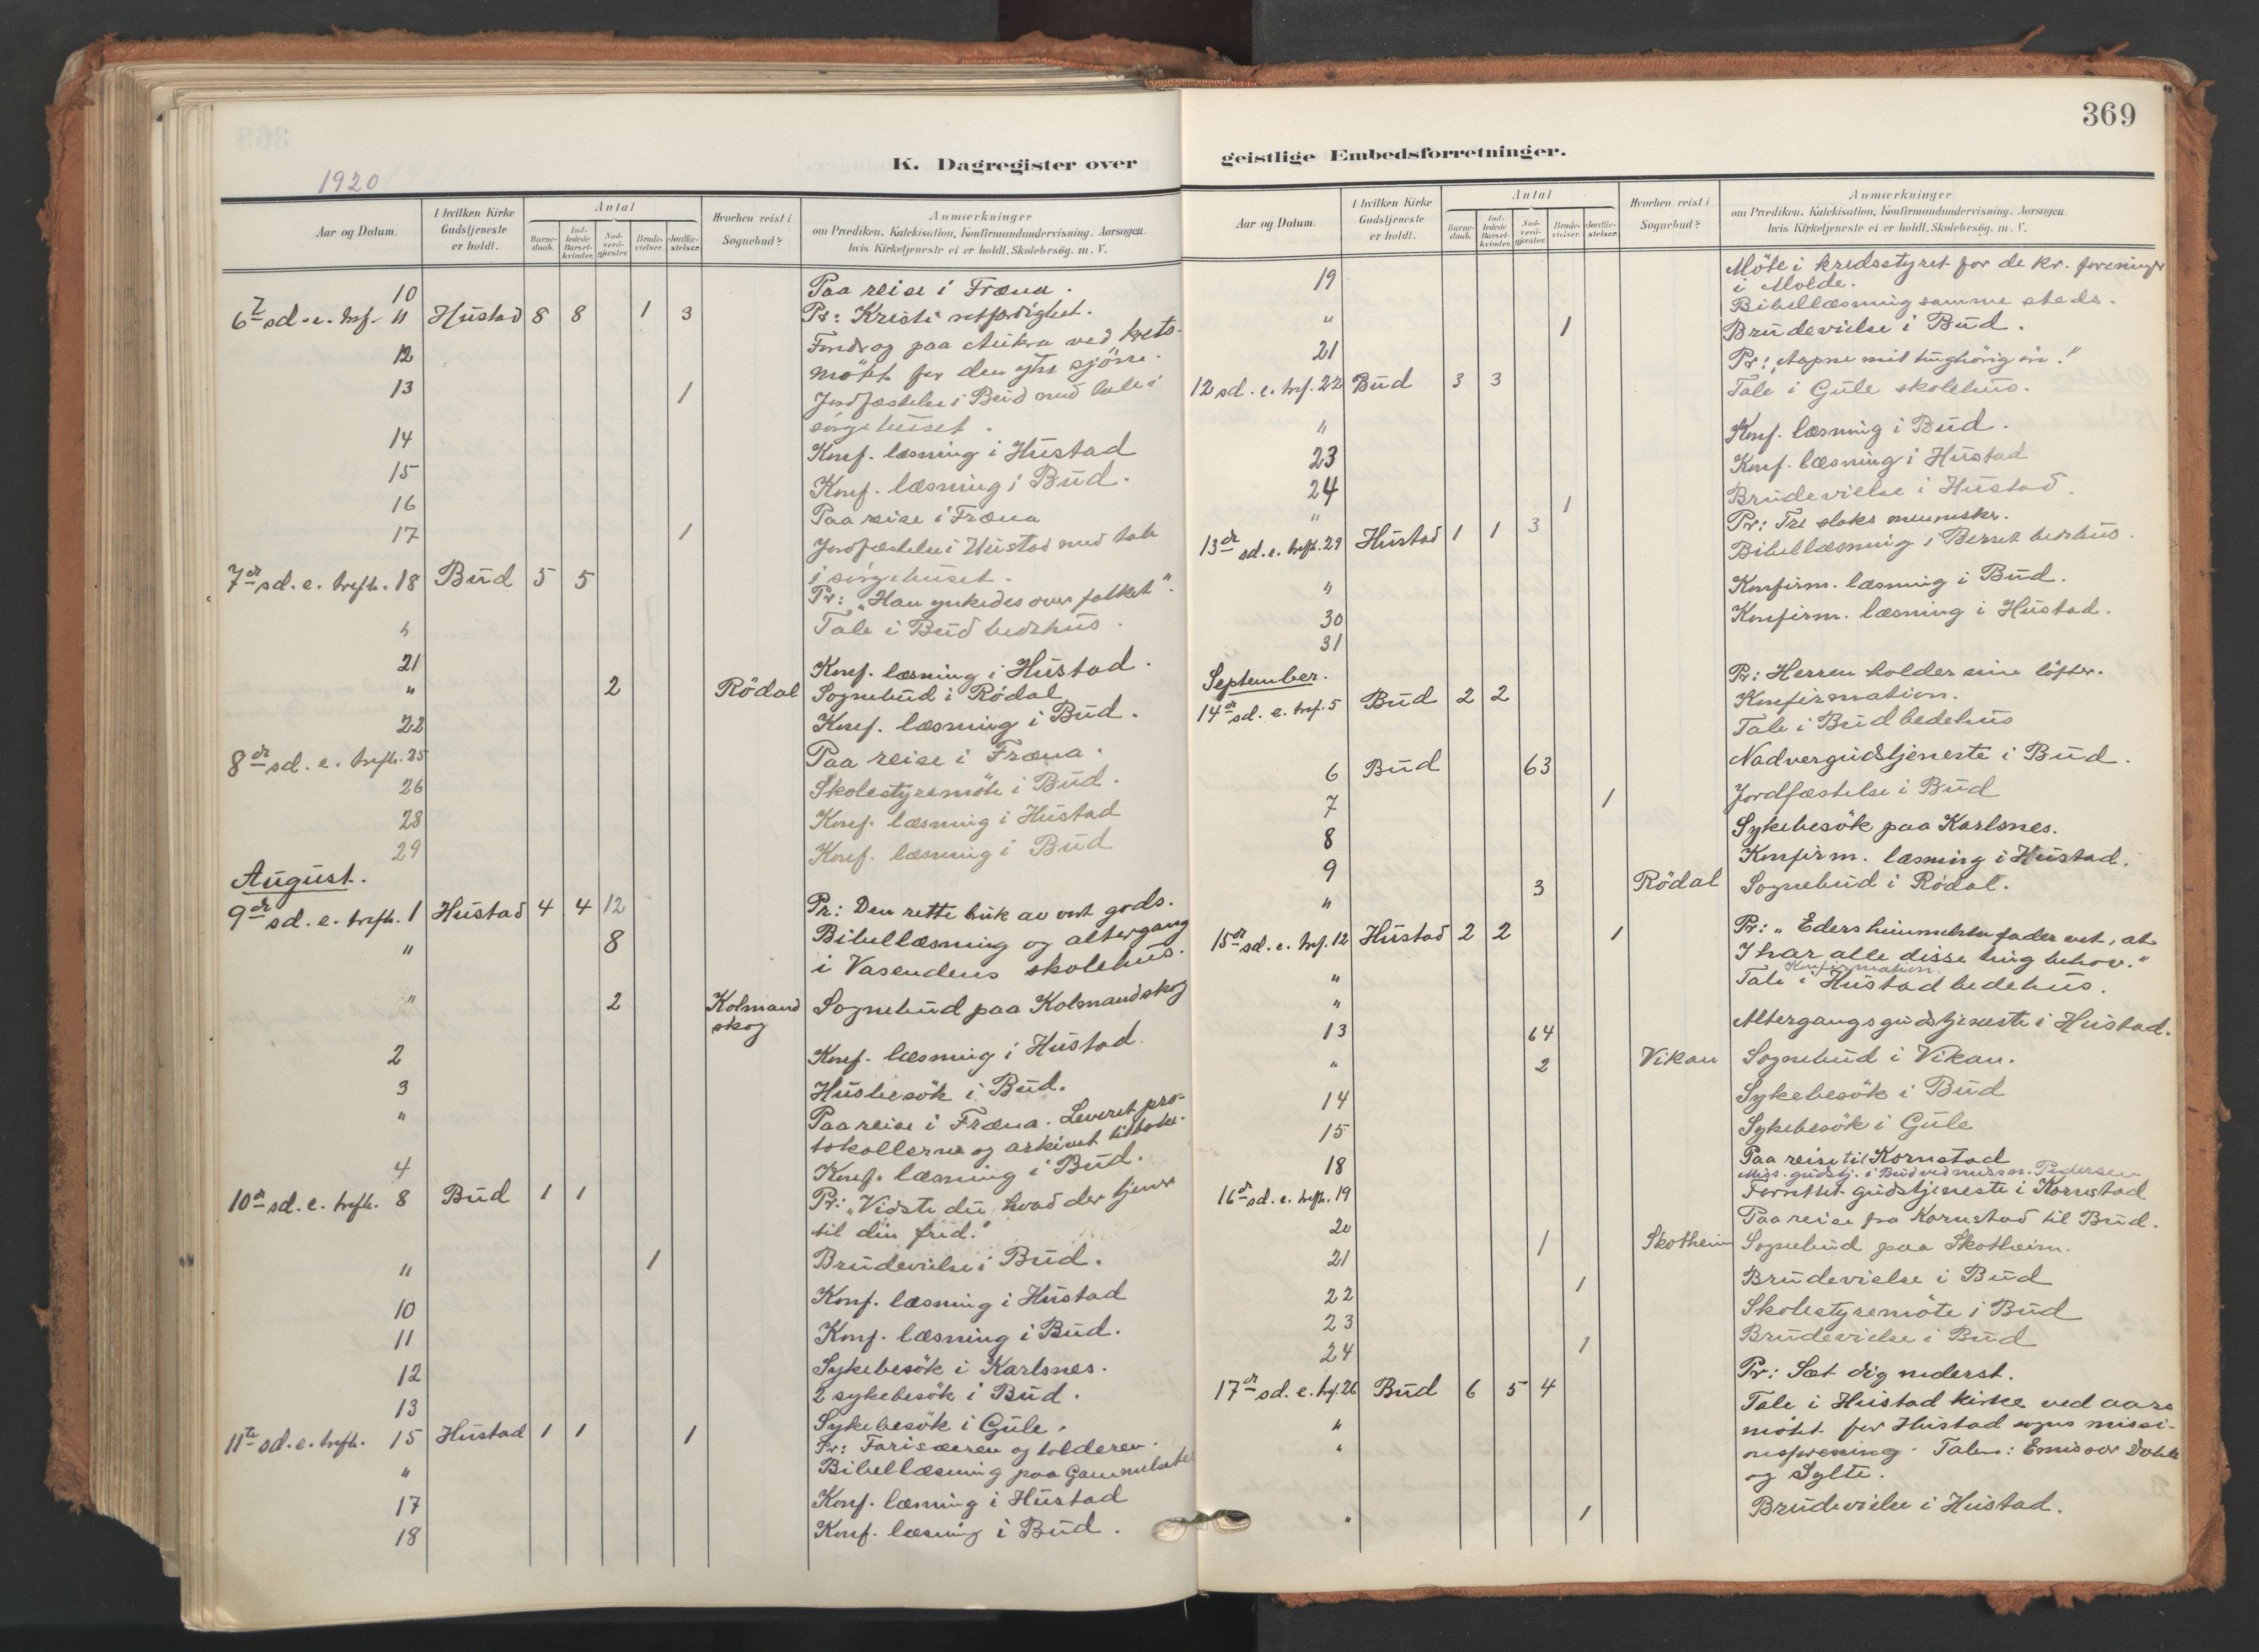 369
K. Dagregister over
geistlige Embedsforretninger.
1920
Aar og Datum.
I hvilken Kirke Gudstjeneste er holdt.
Antal
Barne-daab.
Ind-ledede Barsel-kvinder.
Nad-verd-gjæster.
Brude-vielser.
Jordfæ-stelser.
Hvorhen reist i Sognebud?
Anmærkninger
om Prædiken, Katekisation, Konfirmandundervisning, Aarsagen,
hvis Kirketjeneste ei er holdt, Skolebesøg. m. V.
10 Paa reise i Fræna.
6te sd. e. tref. 11 Hustad 8 8 1 3 Pr: Kristi retfærdighet.
12 Foredrag paa Aukra ved krets-
møte for den ytre sjömi.
13 1 Jordfæstelse i Bud med tale i
sörgehuset.
14 Konf. læsning i Hustad
15 Konf. læsning i Bud.
16 Paa reise i Fræna
17 1 Jordfæstelse i Hustad med tale
i sörgehuset.
7de sd. e. trefh. 18 Bud 5 5 Pr: "Han ynkedes over folket".
" Tale i Bud bedehus.
21 Konf. læsning i Hustad.
" 2 Rödal Sognebud i Rödal
22 Konf. læsning i Bud.
8de sd. e. trefh. 25 Paa reise i Fræna.
26 Skolestyremöte i Bud.
28 Konf. læsning i Hustad
29 Konf. læsning i Bud
August.
9de sd. e. trefh. 1 Hustad 4 4 12 Pr: Den rette bruk av vort gods.
" 8 Bibellæsning og altergang
i Vasendens skolehus.
" 2 Kolmandskog Sognebud paa Kolmandskog
2 Konf. læsning i Hustad.
3 Husbesök i Bud.
" Paa reise i Fræna. Leveret pro-
tokollerne og arkivet tilbake.
4 Konf. læsning i Bud.
10de sd. e. trefh. 8 Bud 1 1 Pr: "Vidste du, hvad der tjener
til din fred."
" 1 Brudevielse i Bud.
10 Konf. læsning i Hustad
11 Konf. læsning i Bud.
12 Sykebesök i Karlsnes.
2 sykebesök i Bud.
13 Sykebesök i Gule.
11te sd. e. trefh. 15 Hustad 1 1 1 Pr: Farisæeren og tolderen.
" Bibellæsning paa Gammelsæter
17 Konf. læsning i Hustad
18 Konf. læsning i Bud.
Aar og Datum.
I hvilken Kirke Gudstjeneste er holdt.
Antal
Barne-daab.
Ind-ledede Barsel-kvinder.
Nad-verd-gjæster.
Brude-vielser.
Jordfæ-stelser.
Hvorhen reist i Sognebud?
Anmærkninger
om Prædiken, Katekisation, Konfirmandundervisning, Aarsagen,
hvis Kirketjeneste ei er holdt, Skolebesøg. m. V.
19 Möte i kredsstyret for de kr. foreninger
i Molde.
" Bibellæsning samme steds.
21 1 Brudevielse i Bud.
12 sd. e. tref. 22 Bud 3 3 Pr: "Aapne mit tunghörig öre."
" Tale i Gule skolehus.
23 Konf. læsning i Bud.
24 Konf. læsning i Hustad
" 1 Brudevielse i Hustad.
13de sd. e. trefh. 29 Hustad 1 1 3 Pr: Tre slaks mennesker.
" Bibellæsning i Berset bedehus.
30 Konfirm. læsning i Bud.
31 Konfirm. læsning i Hustad.
September.
14de sd. e. tref. 5 Bud 2 2 Pr: Herren holder sine löfter.
Konfirmation.
Tale i Bud bedehus
6 Bud 63 Nadvergudstjeneste i Bud.
7 1 Jordfæstelse i Bud
8 Sykebesök paa Karlsnes.
9 Konfirm. læsning i Hustad.
" 3 Rödal Sognebud i Rödal.
15de sd. e. tref. 12 Hustad 2 2 1 Pr: "Eders himmelske fader vet, at
I har alle disse ting behov."
" Konfirmation.
" Tale i Hustad bedehus.
13 64 Altergangsgudstjeneste i Hustad.
" 2 Vikan Sognebud i Vikan.
14 Sykebesök i Bud
15 Sykebesök i Gule
18 Paa reise til Kornstad
Miss. gudstj. i Bud ved missn. Pedersen
16de sd. e. trefh. 19 Forrettet gudstjeneste i Kornstad
20 Paa reise fra Kornstad til Bud.
21 1 Skotheim Sognebud paa Skotheim.
22 1 Brudevielse i Bud
23 Skolestyremöte i Bud
24 1 Brudevielse i Bud
17de sd. e. tref. 26 Bud 6 5 4 Pr: Sæt dig nederst.
" Tale i Hustad kirke ved aars
" möket for Hustad sogns missi-
onsforening. Talere: Emissær
og Sylte.
" 1 Brudevielse i Hustad.